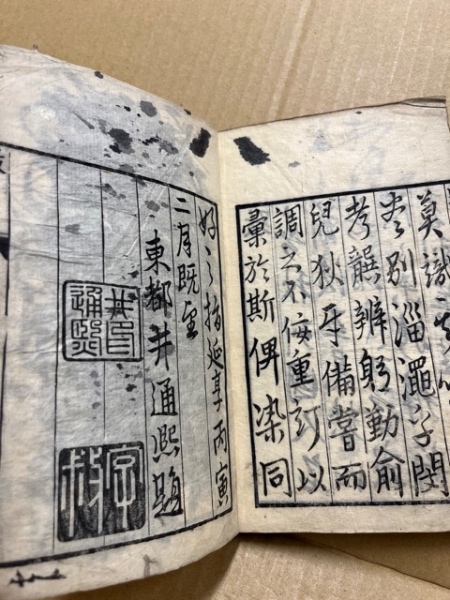 莫識
別淄澠
考饌辨躬勤俞
兒狄牙備嘗而
調之不佞重訂以
彙於斯俾染同
好之指延享丙寅
二月既望
東都井通熙題
井印通熙